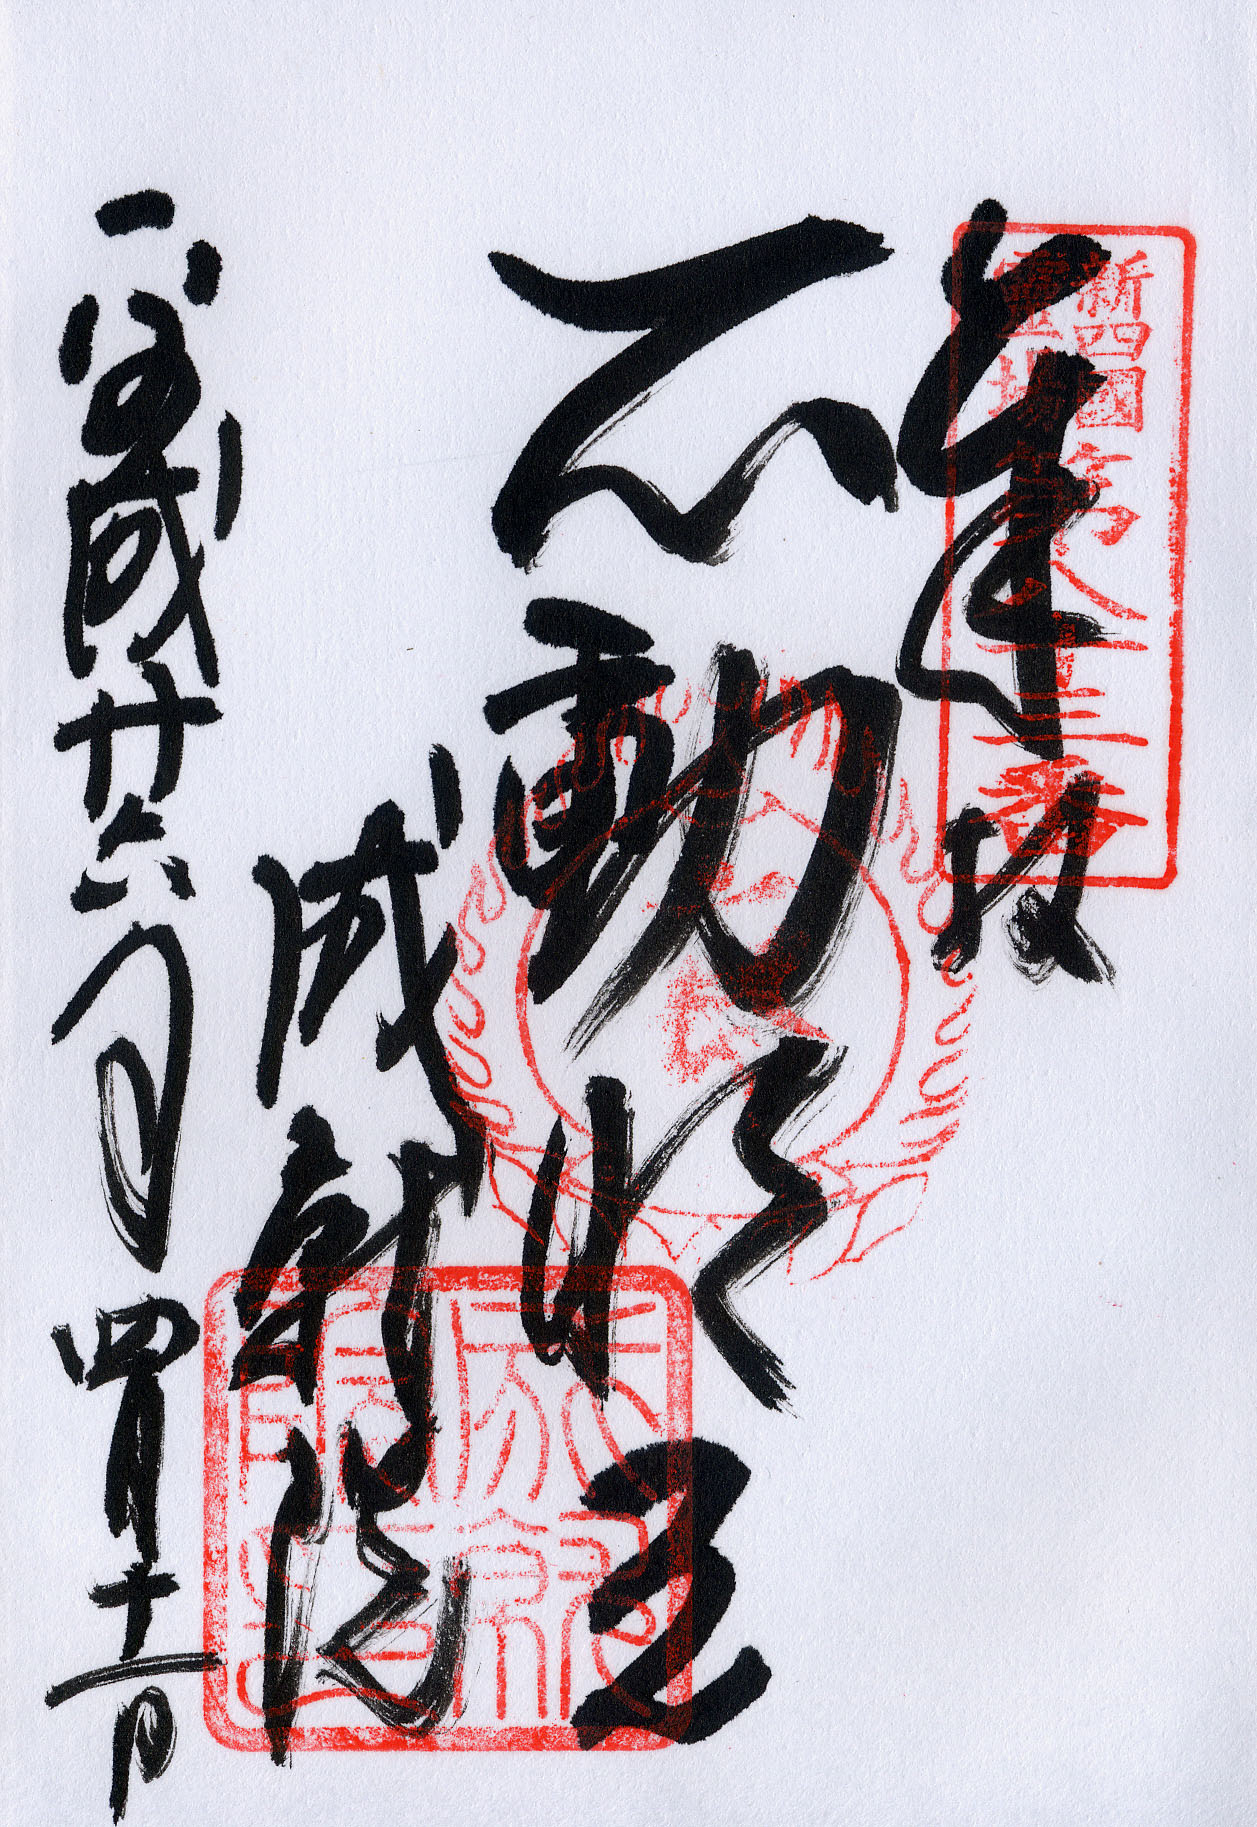 奉拝
新四國
靈場
第八十三番
不動明王
成就院
平成廿六年四月十一日